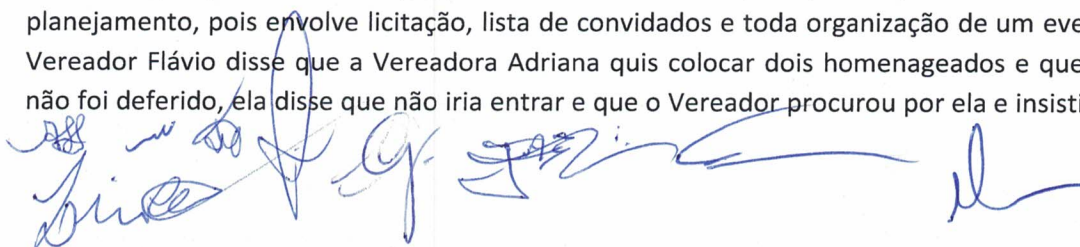 planejamento, pois envolve licitação, lista de convidados e toda organização de um eve
Vereador Flávio disse que a Vereadora Adriana quis colocar dois homenageados e que
não foi deferido, ela disse que não iria entrar e que o Vereador procurou por ela e insisti